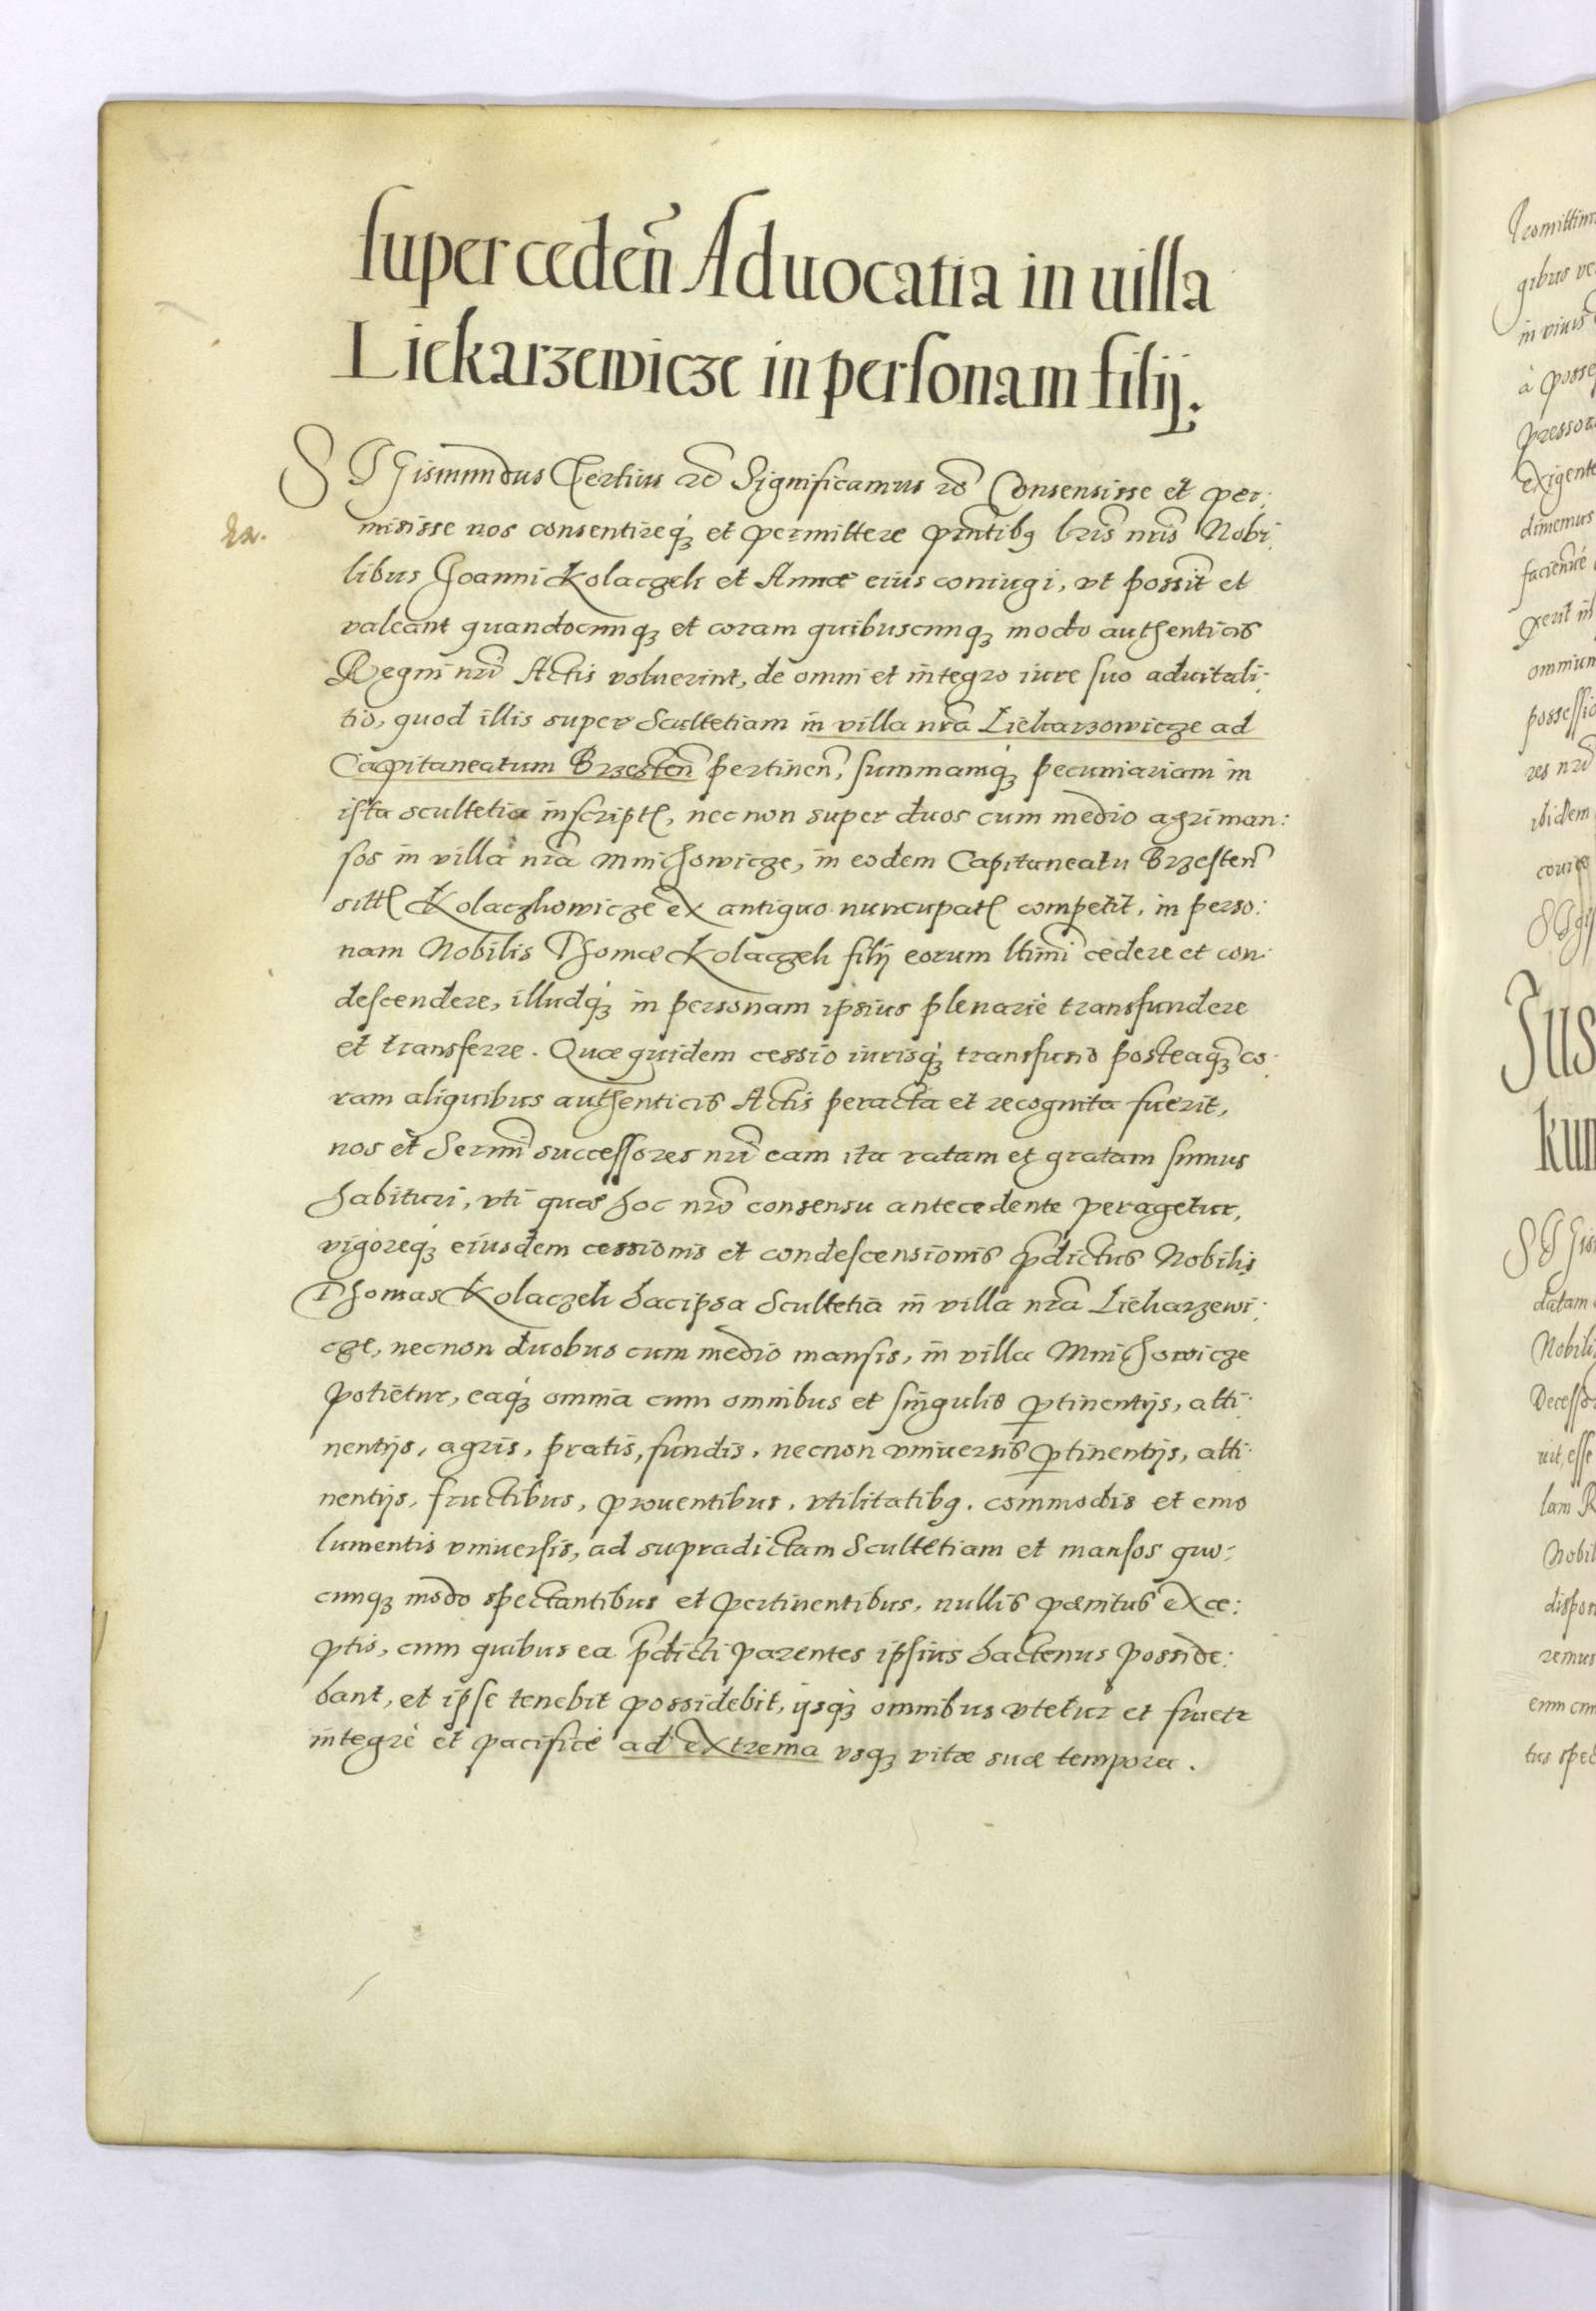 super ceden̄ Aduocatia in uilla
Liekarzewicze in personam filij.
SIGismundus Tertius etc̄ Significamus etc̄ Consensisse et per:
misisse nos consentireq́ꝫ et permittere pn̄tibꝰ lr̄is nr̄is Nobi:
libus Joanni Kolaczek et Annæ eius coniugi, vt possit et
valeant quandocunqꝫ et coram quibuscunqꝫ modo authenticis
Regni nr̄i Actis voluerint, de omni et integro iure suo aduitali:
tio, quod illis super Scultetiam in villa nr̄a Liekarzowicze ad
Capitaneatum Brzesten̄ pertinen̄, summamq́ꝫ pecuniariam in
ista scultetia inscriptꝭ, nec non super duos cum medio agri man:
sos in villa nr̄a Mnichowicze, in eodem Capitaneatu Brzesten̄
sittꝭ Kolaczkowicze ex antiquo nuncupatꝭ competit, in perso:
nam Nobilis Thomæ Kolaczek filij eorum ltīmi cedere et con:
descendere, illudq́ꝫ in personam ipsius plenariè transfundere
et transferre. Quæ quidem cessio iurisq́ꝫ transfusio posteaq̄ꝫ co:
ram aliquibus authenticis Actis peracta et recognita fuerit,
nos et Serm̄i successores nr̄i eam ita ratam et gratam sumus
habituri, vti quæ hoc nr̄o consensu antecedente peragetur,
vigoreq́ꝫ eiusdem cessionis et condescensionis p̄dictus Nobilis
Thomas Kolaczek hac ipsa Scultetia in villa nr̄a Liekarzewi:
cze, necnon duobus cum medio mansis, in villa Mnichowicze
potietur, eaq́ꝫ omnia cum omnibus et singulis ꝑtinentijs, atti:
nentijs, agris, pratis, fundis, necnon vniuersis ꝑtinentijs, atti:
nentijs, fructibus, prouentibus, vtilitatibꝰ, commodis et emo
lumentis vniuersis, ad supradictam Scultetiam et mansos quo:
cunqꝫ modo spectantibus et pertinentibus, nullis pænitus exce:
ptis, cum quibus ea p̄dicti parentes ipsius hactenus posside:
bant, et ipse tenebit possidebit, ijsq́ꝫ omnibus vtetur et fruetr
integrè et pacificè ad extrema vsqꝫ vitæ suæ tempora.
Jus
kun